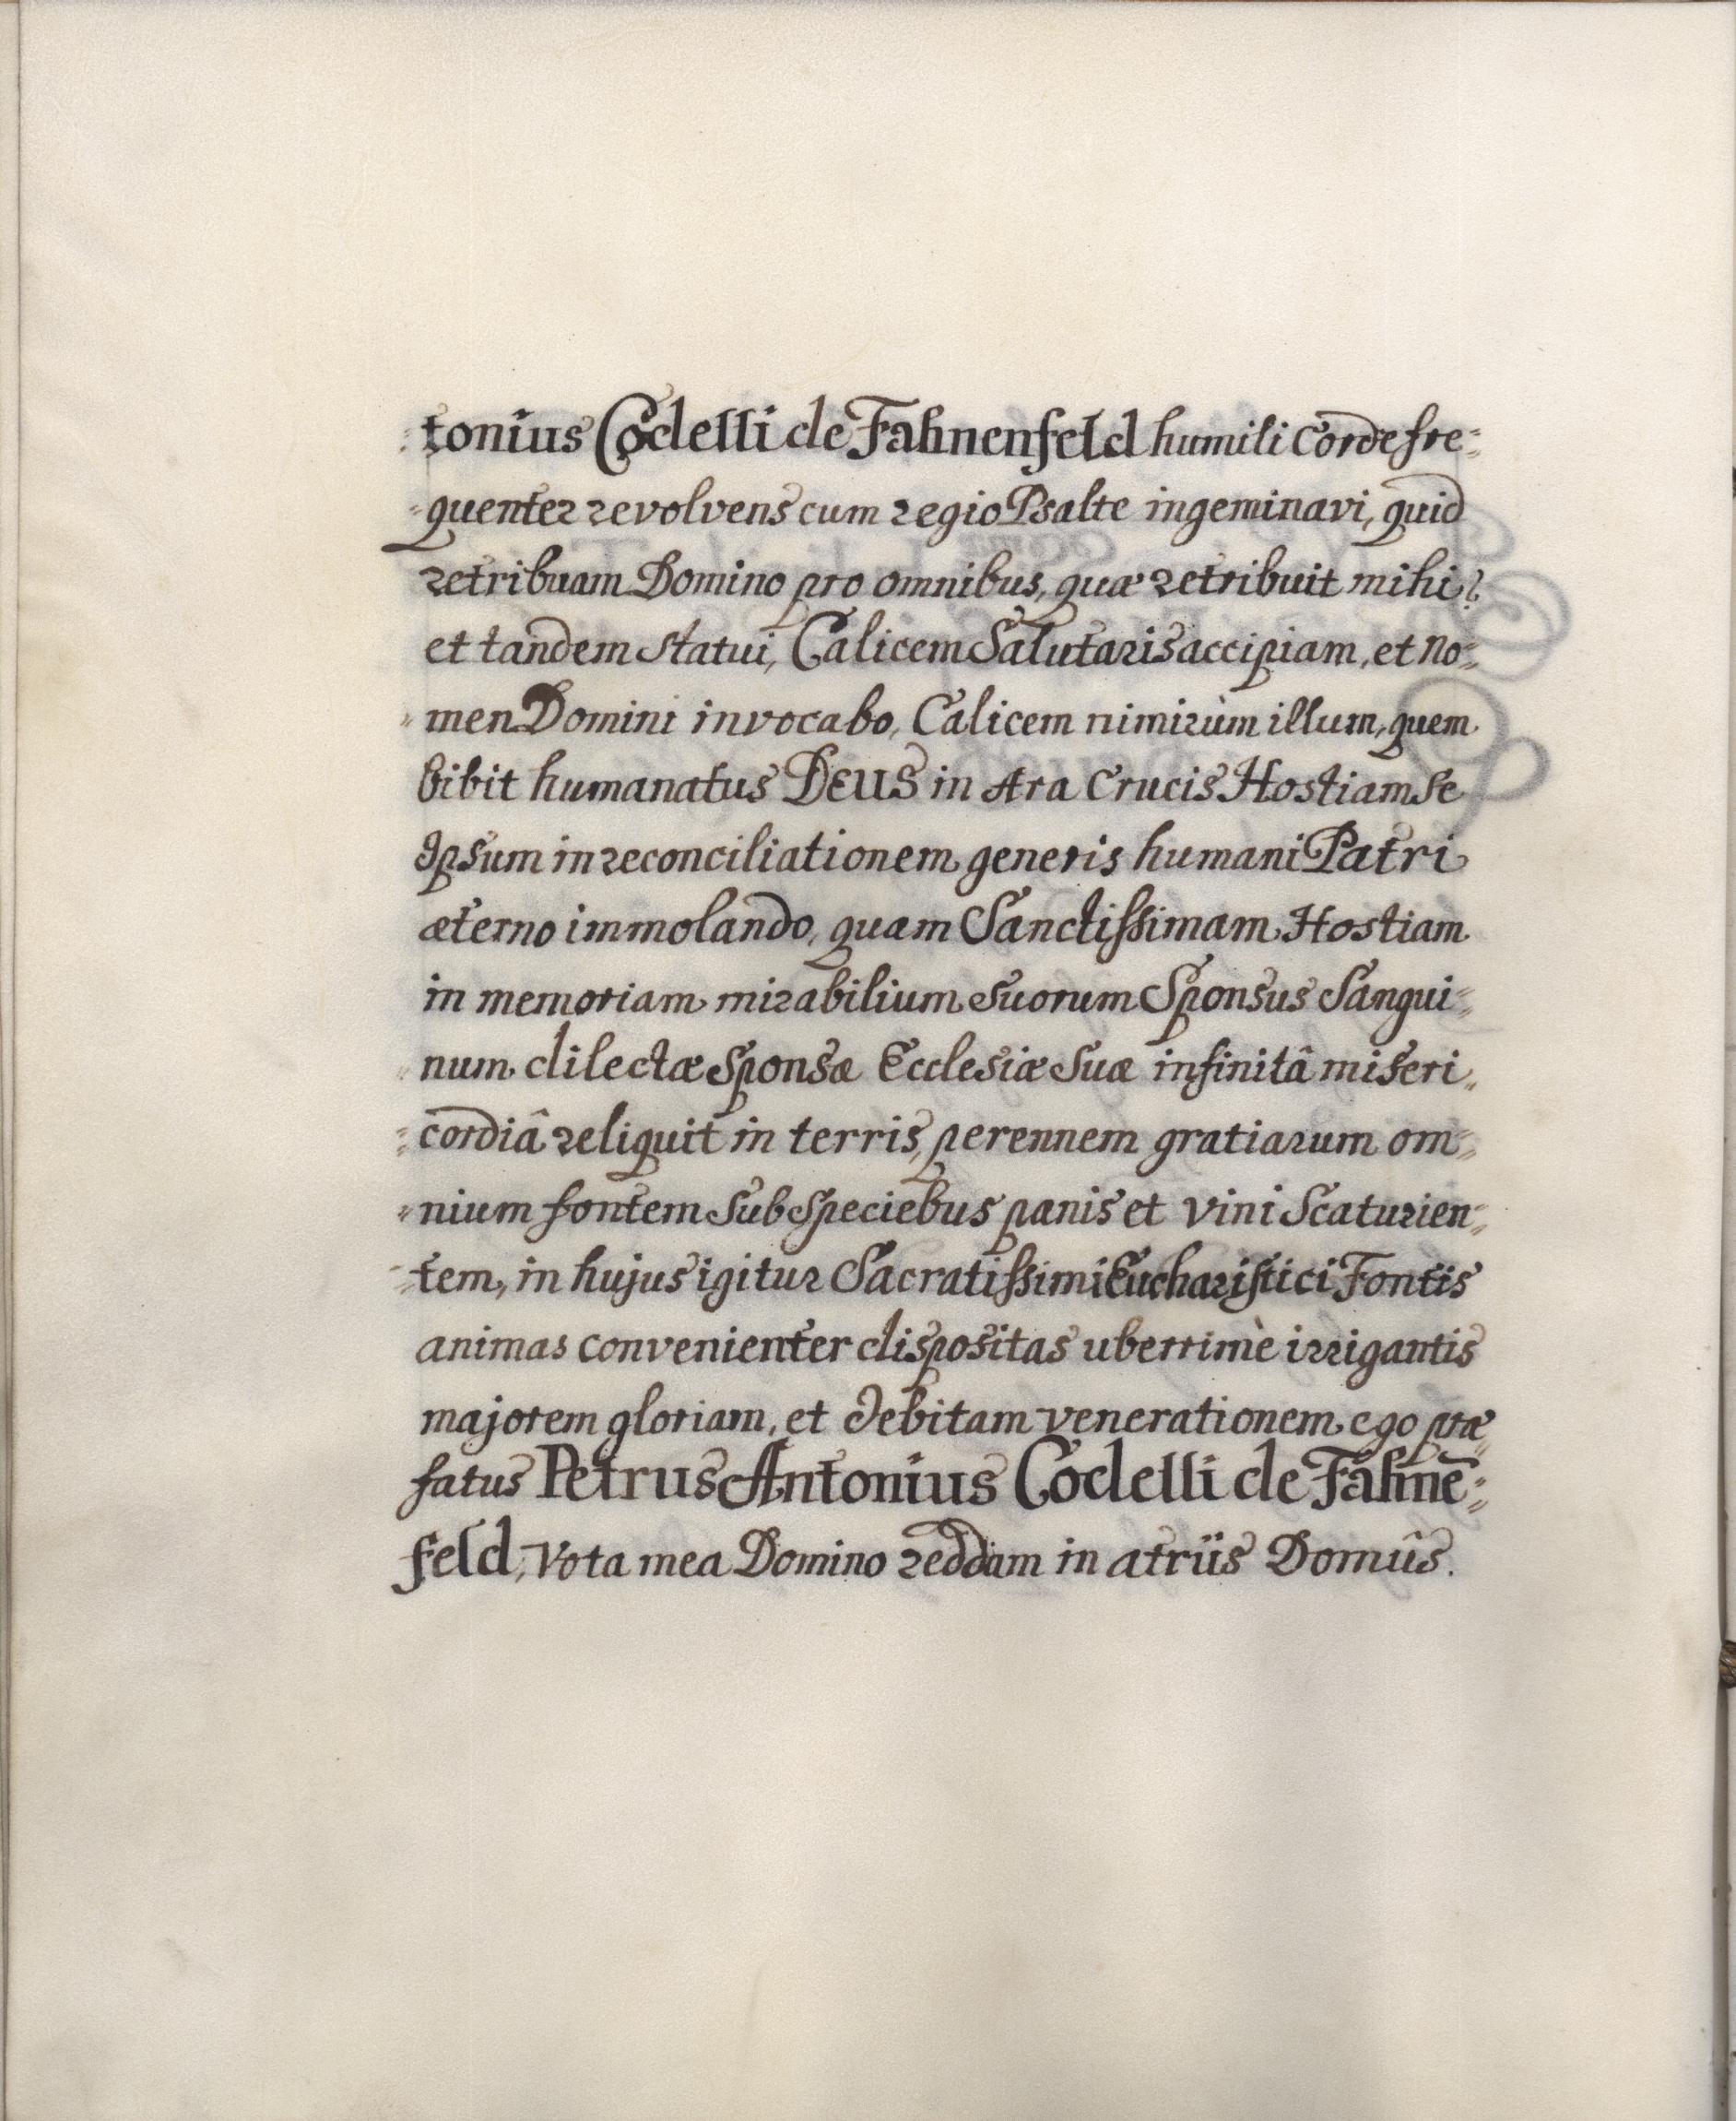 tonius Codelli de Fahnenfeld humili Corde fre=
=quenter revolvens cum regio Psalte ingeminavi, quid
retribuam Domino pro omnibus, quæ retribuit mihi?
et tandem statui, Calicem Salutaris accipiam, et No=
=men Domini invocabo, Calicem nimirùm illum, quem
bibit humanatus DEUS in Ara Crucis Hostiam Se
Ipsum in reconciliationem generis humani Patri
æterno immolando, quam Sanctissimam Hostiam
in memoriam mirabilium Suorum Sponsus Sangui=
=num dilectæ Sponsæ Ecclesiæ Suæ infinitâ miseri=
=cordiâ reliquit in terris, perennem gratiarum om=
=nium fontem Sub Speciebus panis et vini Scaturien=
=tem, in hujus igitur Sacratissimi Eucharistici Fontis
animas convenienter dispositas uberrimè irrigantis
majorem gloriam, et debitam venerationem ego præ=
fatus Petrus Antonius Codelli de Fahnē=
feld, Vota mea Domino reddam in atriis Domûs.